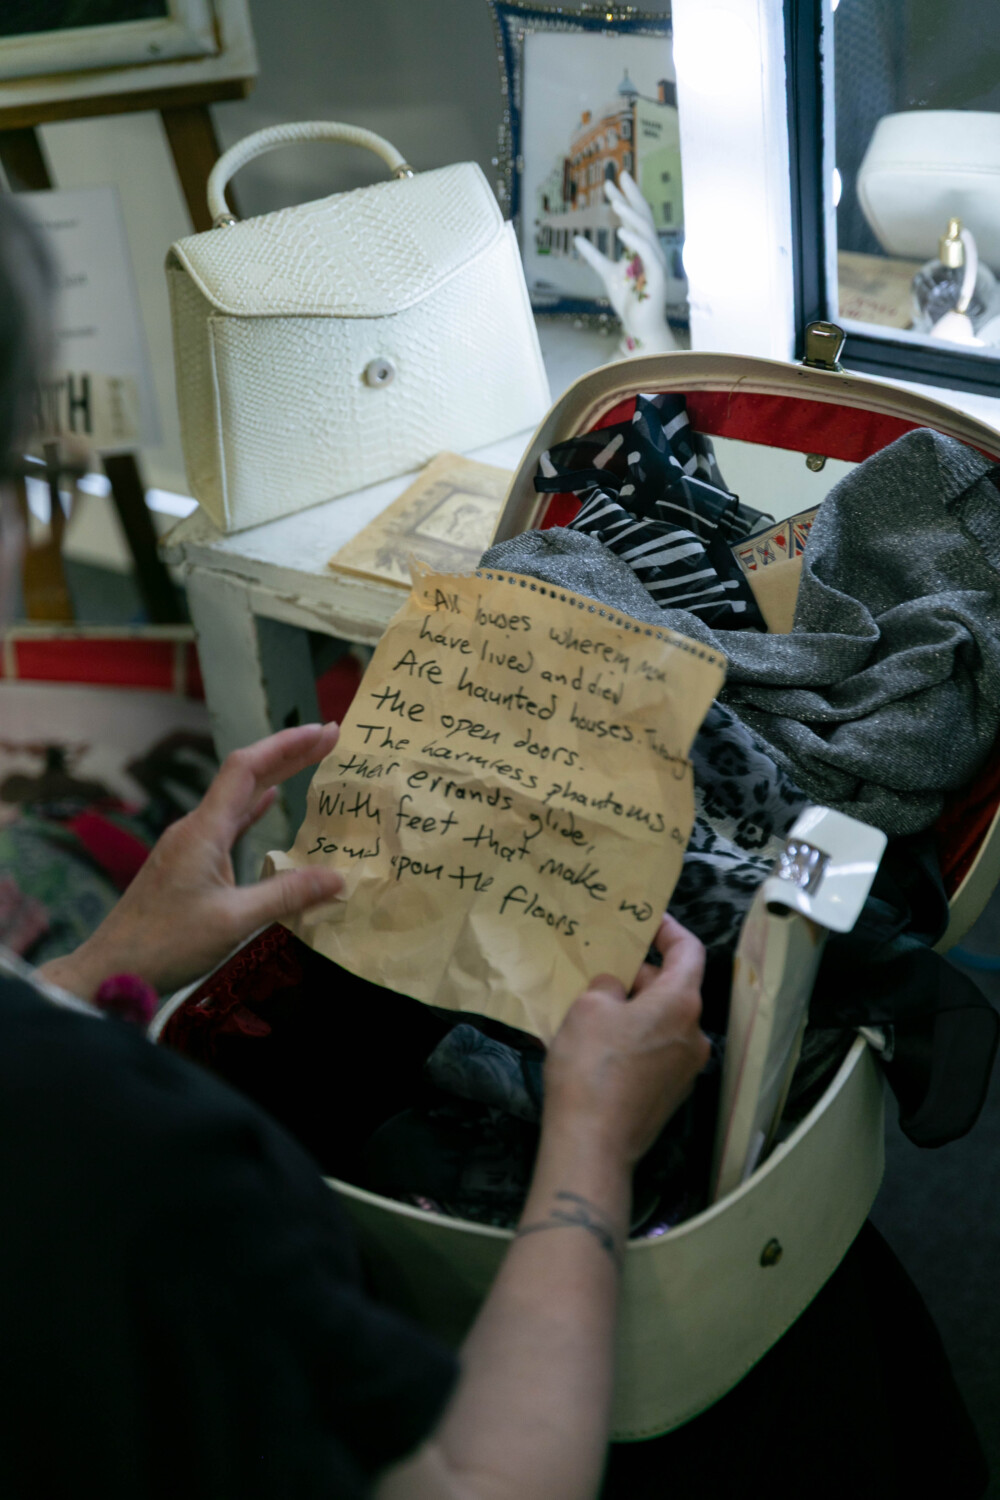 "All houses wherein men
have lived and died
Are haunted houses. Through
the open doors.
The harmless phantoms on
their errands glide,
With feet that make no
sound upon the floors.
ATH